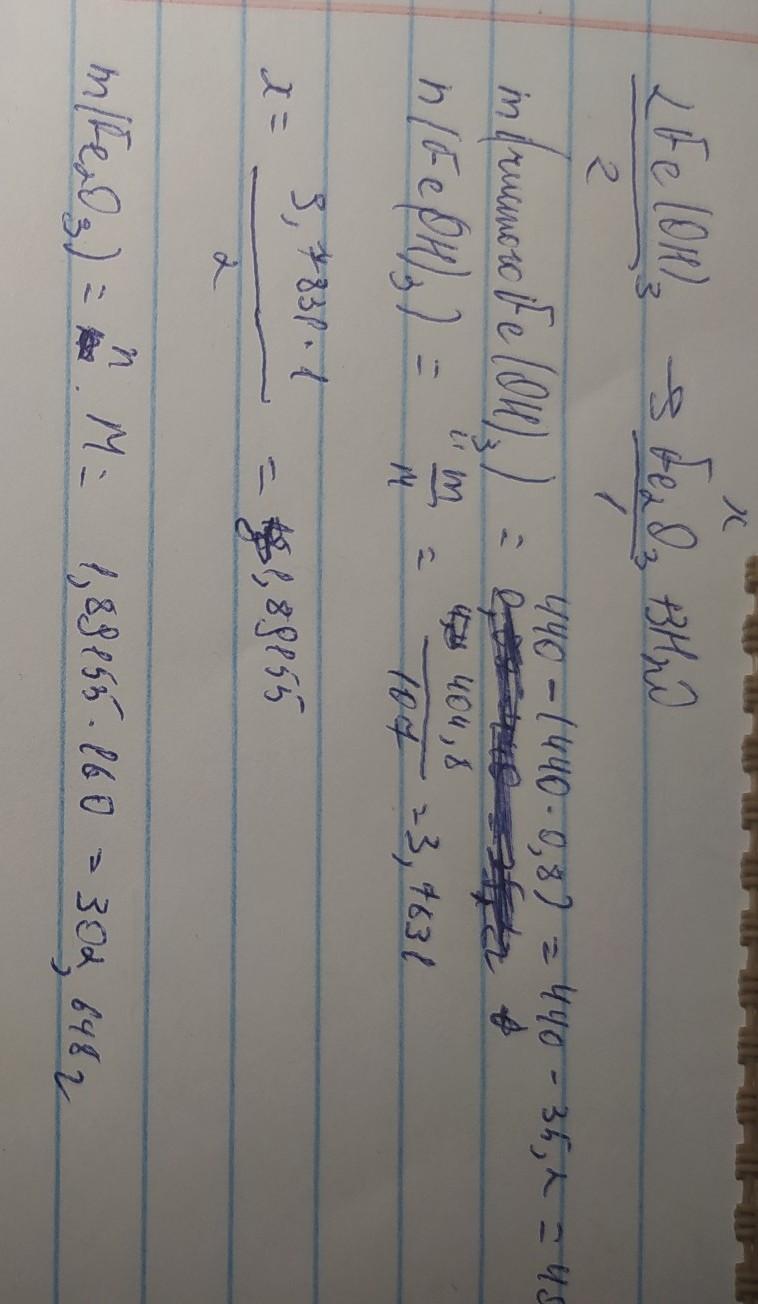 x
2Fe(OH)3 → Fe2O3 + 3H2O
2 1
m(чистого Fe(OH)3) = 440 - (440 · 0,8) = 440 - 35,2 =
n(Fe(OH)3) = m/M = 404,8/107 = 3,7831
x = 3,7831 · 1/2 = 1,89155
m(Fe2O3) = n · M = 1,89155 · 160 = 302,648 г